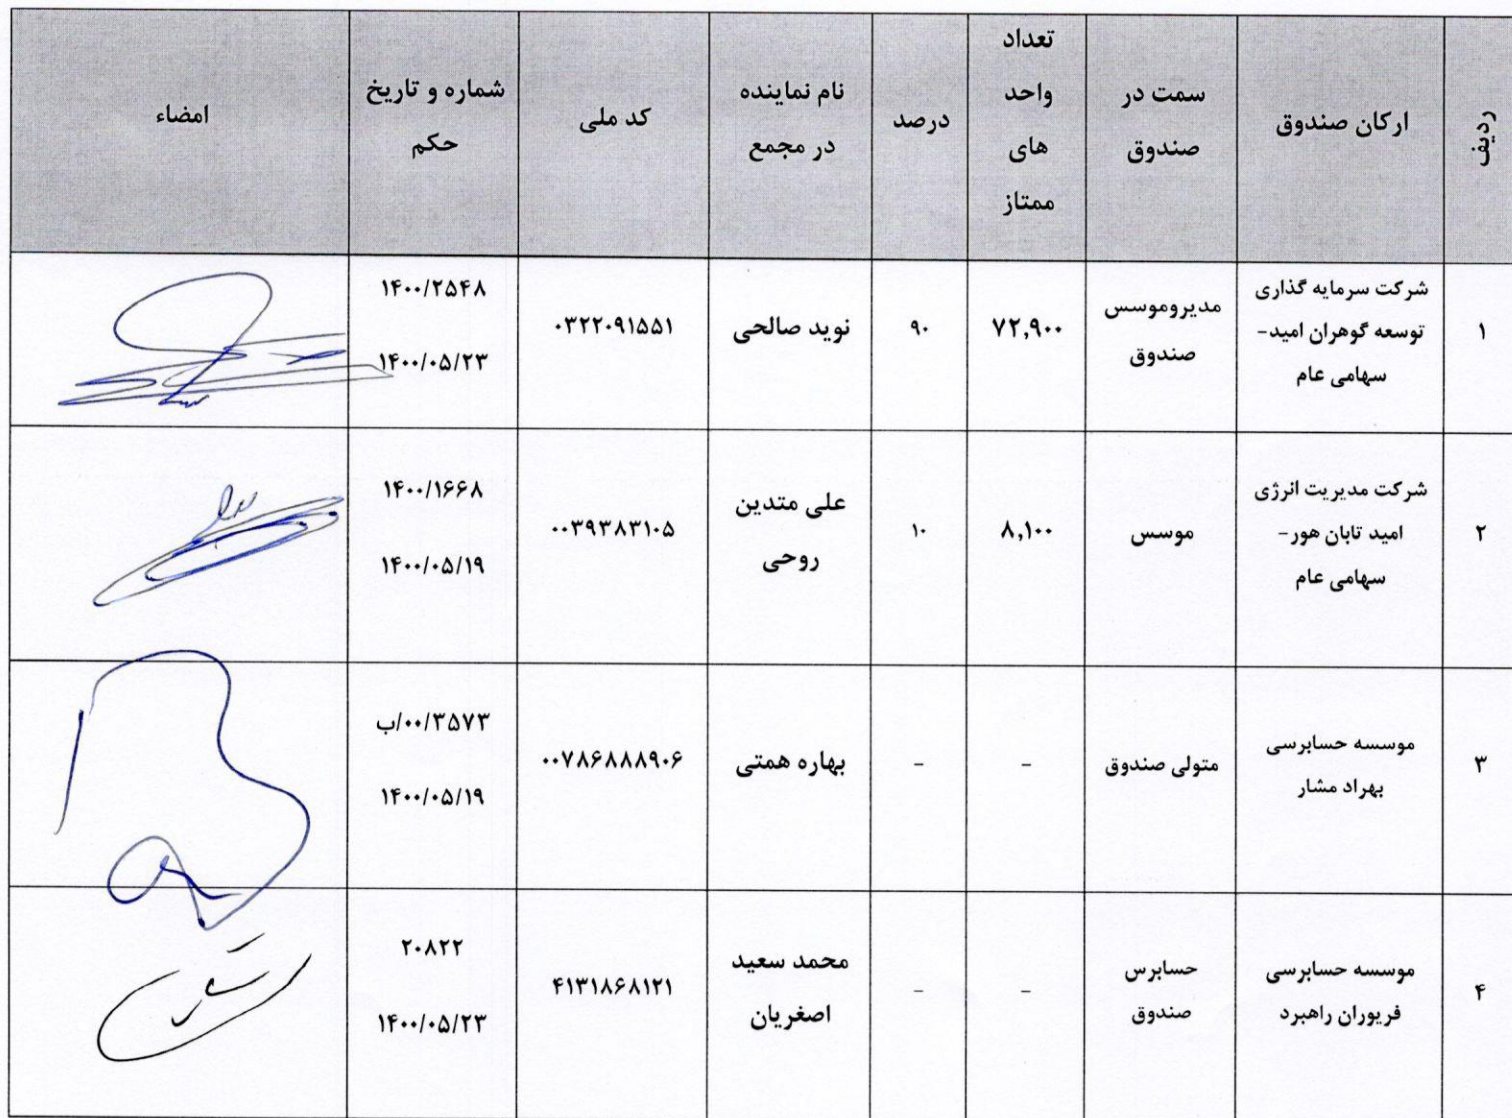 ردیف
ارکان صندوق
سمت در
صندوق
تعداد
واحد
های
ممتاز
درصد
نام نماینده
در مجمع
کد ملی
شماره و تاریخ
حکم
امضاء
۱
شرکت سرمایه گذاری
توسعه گوهران امید-
سهامی عام
مدیروموسس
صندوق
۷۲,۹۰۰
۹۰
نوید صالحی
۰۳۲۲۰۹۱۵۵۱
۱۴۰۰/۲۵۴۸
۱۴۰۰/۰۵/۲۳
۲
شرکت مدیریت انرژی
امید تابان هور-
سهامی عام
موسس
۸,۱۰۰
۱۰
علی متدین
روحی
۰۰۳۹۳۸۳۱۰۵
۱۴۰۰/۱۶۶۸
۱۴۰۰/۰۵/۱۹
۳
موسسه حسابرسی
بهراد مشار
متولی صندوق
-
-
بهاره همتی
۰۰۷۸۶۸۸۸۹۰۶
۰۰/۳۵۷۳/ب
۱۴۰۰/۰۵/۱۹
۴
موسسه حسابرسی
فریوران راهبرد
حسابرس
صندوق
-
-
محمد سعید
اصغریان
۴۱۳۱۸۶۸۱۲۱
۲۰۸۲۲
۱۴۰۰/۰۵/۲۳